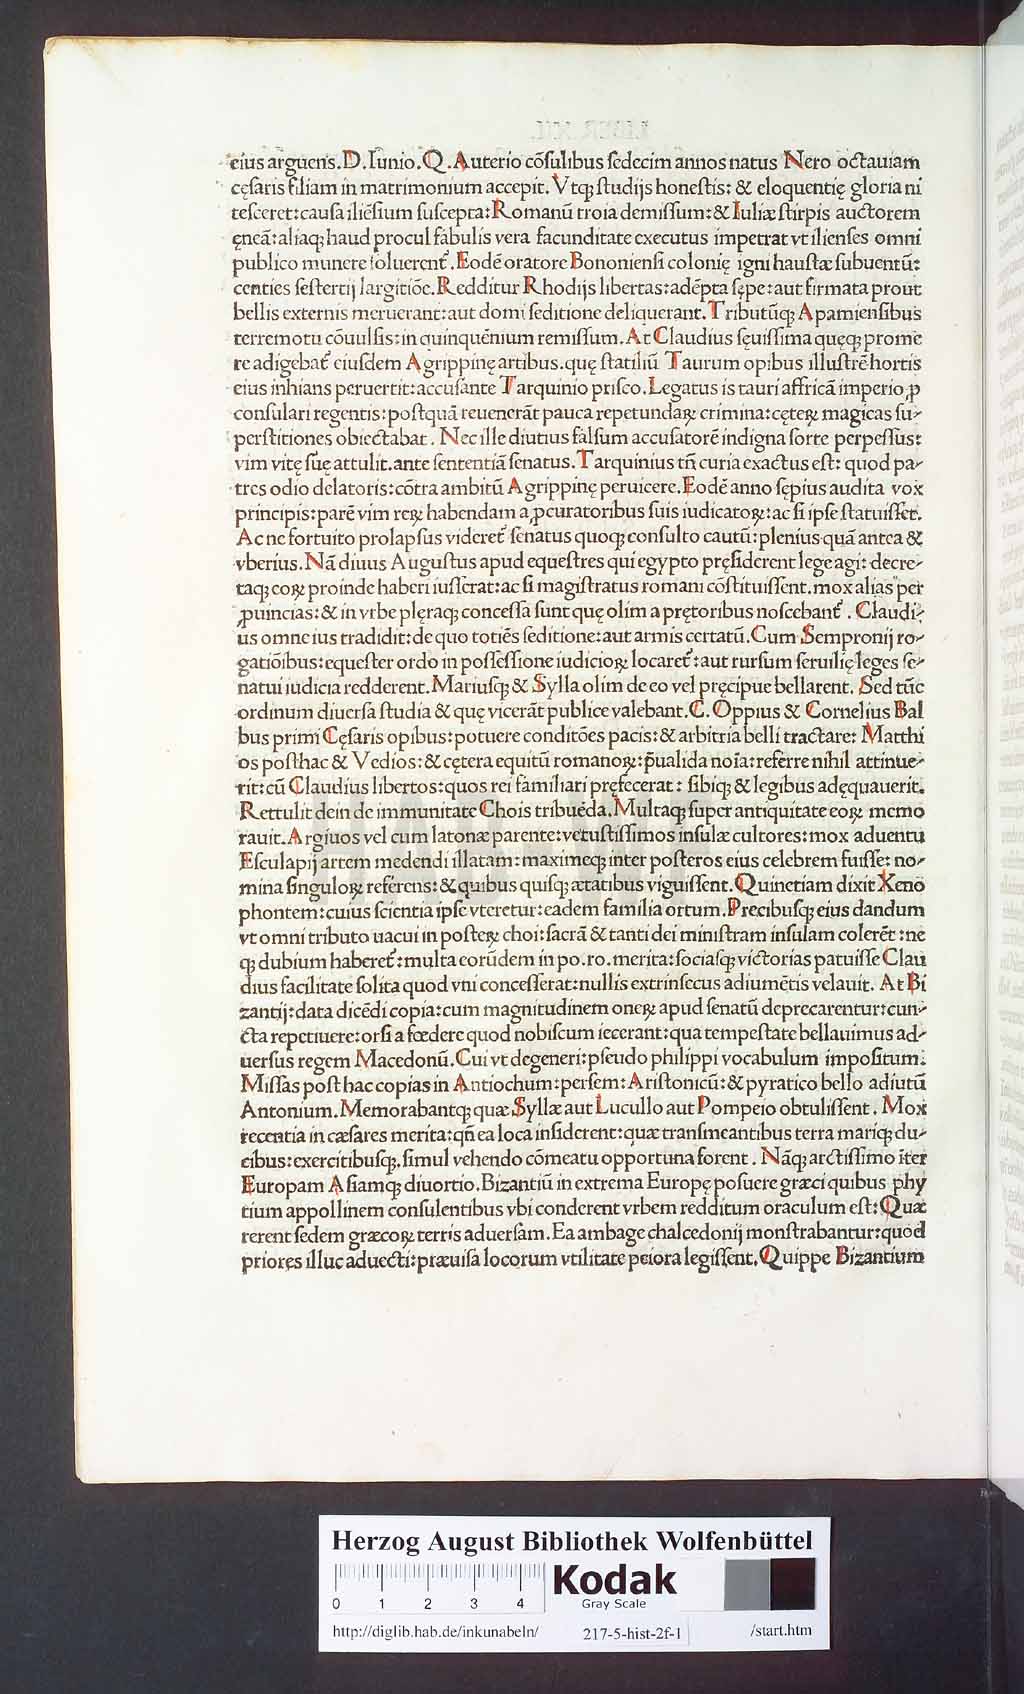 eius arguens. D. Iunio. Q. Auterio cōſulibus ſedecim annos natus Nero octauiam
cęſaris filiam in matrimonium accepit. Vtqꝫ ſtudijs honeſtis: & eloquentię gloria ni
teſceret: cauſa iliēſium ſuſcepta: Romanū troia demiſſum: & Iuliæ ſtirpis auctorem
ęneā: aliaqꝫ haud procul fabulis vera facunditate executus impetrat vt ilienſes omni
publico munere ſoluerent᷑. Eodē oratore Bononienſi colonię igni hauſtæ ſubuentū:
centies ſeſtertij largitiōe. Redditur Rhodijs libertas: adēpta ſępe: aut firmata prout
bellis externis meruerant: aut domi ſeditione deliquerant. Tributūqꝫ Apamienſibus
terremotu cōuulſis: in quinquēnium remiſſum. At Claudius ſęuiſſima quęqꝫ prome
re adigebat᷑ eiuſdem Agrippinę artibus. quę ſtatiliū Taurum opibus illuſtrē hortis
eius inhians peruertit: accuſante Tarquinio priſco. Legatus is tauri affricā imperio ꝓ
conſulari regentis: poſtquā reuenerāt pauca repetundaꝝ crimina: cęteꝝ magicas ſu-
perſtitiones obiectabat. Nec ille diutius falſum accuſatorē indigna ſorte perpeſſus:
vim vitę ſuę attulit. ante ſententiā ſenatus. Tarquinius tn̄ curia exactus eſt: quod pa-
tres odio delatoris: cōtra ambitū Agrippinę peruicere. Eodē anno ſępius audita vox
principis: parē vim reꝝ habendam a ꝓcuratoribus ſuis iudicatoꝝ: ac ſi ipſe ſtatuiſſet.
Ac ne fortuito prolapſus videret᷑ ſenatus quoqꝫ conſulto cautū: plenius quā antea &
vberius. Nā diuus Auguſtus apud equeſtres qui egypto pręſiderent lege agi: decre-
taqꝫ eoꝝ proinde haberi iuſſerat: ac ſi magiſtratus romani cōſtituiſſent. mox alias per
ꝓuincias: & in vrbe plęraqꝫ conceſſa ſunt quę olim a prętoribus noſcebant᷑. Claudi-
us omne ius tradidit: de quo totiēs ſeditione: aut armis certatū. Cum Sempronij ro-
gatiōibus: equeſter ordo in poſſeſſione iudicioꝝ locaret᷑: aut rurſum ſeruilię leges ſe-
natui iudicia redderent. Mariuſqꝫ & Sylla olim de eo vel pręcipue bellarent. Sed tūc
ordinum diuerſa ſtudia & quę vicerāt publice valebant. C. Oppius & Cornelius Bal
bus primi Cęſaris opibus: potuere conditōes pacis: & arbitria belli tractare: Matthi
os poſthac & Vedios: & cętera equitū romanoꝝ: p̄ualida noīa: referre nihil attinue-
rit: cū Claudius libertos: quos rei familiari pręfecerat: ſibiqꝫ & legibus adęquauerit.
Rettulit dein de immunitate Chois tribuēda. Multaqꝫ ſuper antiquitate eoꝝ memo
rauit. Argiuos vel cum latonæ parente: vetuſtiſſimos inſulæ cultores: mox aduentu
Eſculapij artem medendi illatam: maximeqꝫ inter poſteros eius celebrem fuiſſe: no-
mina ſinguloꝝ referens: & quibus quiſqꝫ ætatibus viguiſſent. Quinetiam dixit Xeno
phontem: cuius ſcientia ipſe vteretur: eadem familia ortum. Precibuſqꝫ eius dandum
vt omni tributo uacui in poſteꝝ choi: ſacrā & tanti dei miniſtram inſulam colerēt: ne
qꝫ dubium haberet᷑: multa eorūdem in po. ro. merita: ſociaſqꝫ victorias patuiſſe Clau
dius facilitate ſolita quod vni conceſſerat: nullis extrinſecus adiumētis velauit. At Bi
zantij: data dicēdi copia: cum magnitudinem oneꝝ apud ſenatū deprecarentur: cun-
cta repetiuere: orſi a fœdere quod nobiſcum iecerant: qua tempeſtate bellauimus ad-
uerſus regem Macedonū. Cui vt degeneri: pſeudo philippi vocabulum impoſitum:
Miſſas poſt hac copias in Antiochum: perſem: Ariſtonicū: & pyratico bello adiutū
Antonium. Memorabantqꝫ quæ Syllæ aut Lucullo aut Pompeio obtuliſſent. Mox
recentia in cæſares merita: qn̄ ea loca inſiderent: quæ tranſmeantibus terra mariqꝫ du-
cibus: exercitibuſqꝫ. ſimul vehendo cōmeatu opportuna forent. Nāqꝫ arctiſſimo īter
Europam Aſiamqꝫ diuortio. Bizantiū in extrema Europę poſuere græci quibus phy
tium appollinem conſulentibus vbi conderent vrbem redditum oraculum eſt: Quæ
rerent ſedem græcoꝝ terris aduerſam. Ea ambage chalcedonij monſtrabantur: quod
priores illuc aduecti: præuiſa locorum vtilitate peiora legiſſent. Quippe Bizantium
Herzog August Bibliothek Wolfenbüttel
0 1 2 3 4
Kodak
Gray Scale
http://diglib.hab.de/inkunabeln/ 217-5-hist-2f-1 /start.htm